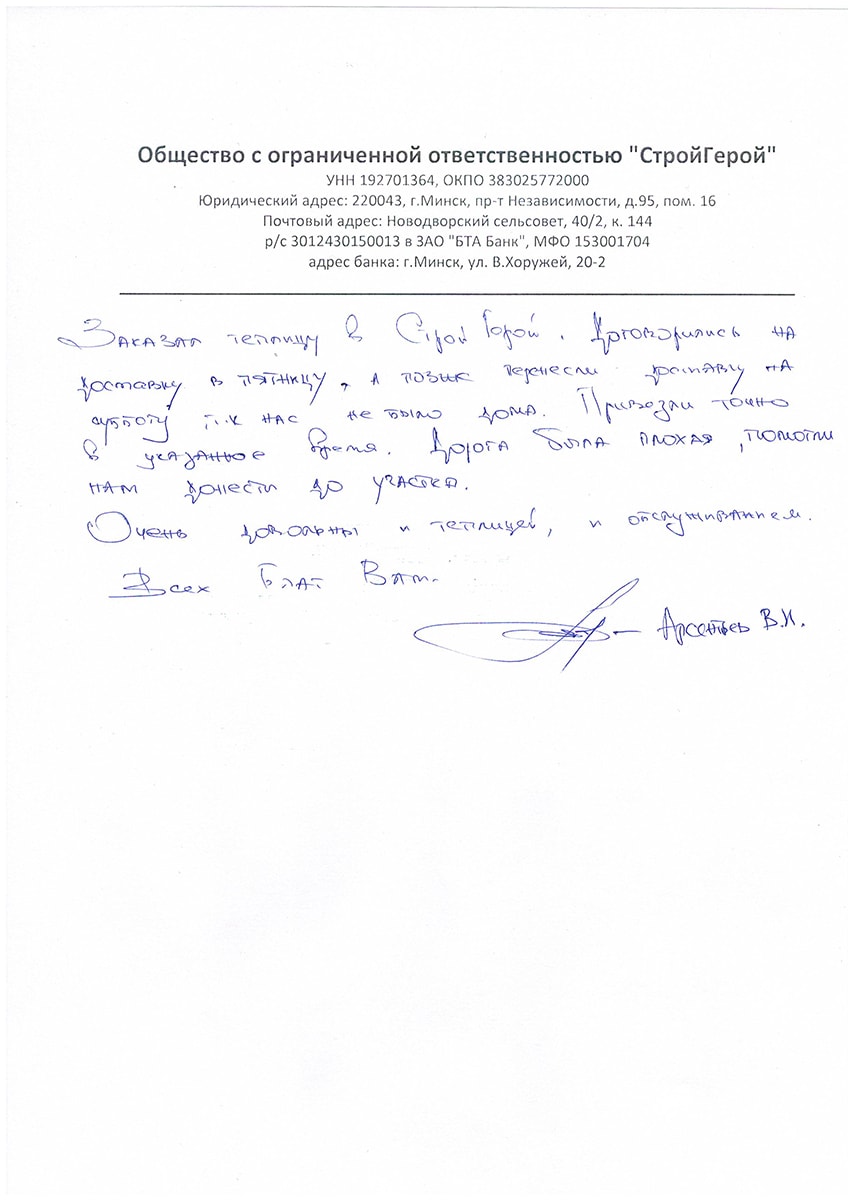 Общество с ограниченной ответственностью "СтройГерой"
УНН 192701364, ОКПО 383025772000
Юридический адрес: 220043, г.Минск, пр-т Независимости, д.95, пом. 16
Почтовый адрес: Новодворский сельсовет, 40/2, к. 144
р/с 3012430150013 в ЗАО "БТА Банк", МФО 153001704
адрес банка: г.Минск, ул. В.Хоружей, 20-2
Заказал теплицу в Строй Герой. Договорились на
доставку в пятницу, а позже перенесли доставку на
субботу т.к нас не было дома. Привезли точно
в указанное время. Дорога была плохая, помогли
нам донести до участка.
Очень довольны и теплицей, и обслуживанием.
Всех Благ Вам.
Арсентьев В.И.